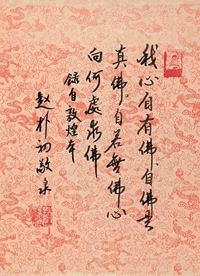 我心自有佛自佛是
真佛自若無佛心
向何處求佛
録自敦煌本
趙朴初敬录